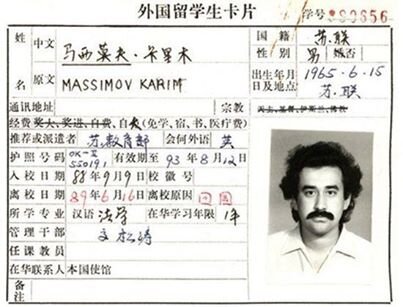 外国留学生卡片 学号 890656
姓名 中文 马西莫夫·卡里木 国籍 苏联
原文 MASSIMOV KARIM 性别 男 婚否
通讯地址 宗教 出生年月日及地点 1965·6·15 苏联
经费 奖大、奖进、自费、自 (免学、宿、书、医疗费) 天主、基督、伊斯兰、佛教
推荐或派遣者 苏教育部 会何外语 英
护照号码 OK-II 550191 有效期至 93年8月12日
入校日期 88年9月9日 校徽号
离校日期 89年6月16日 离校原因 回国
所学专业 汉语 法学 在华学习年限 1年
管理干部
任课教员
在华联系人 本国使馆
备注